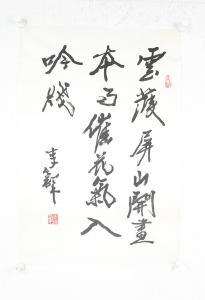 雲護屏山開畫
本雨催花氣入
吟牋